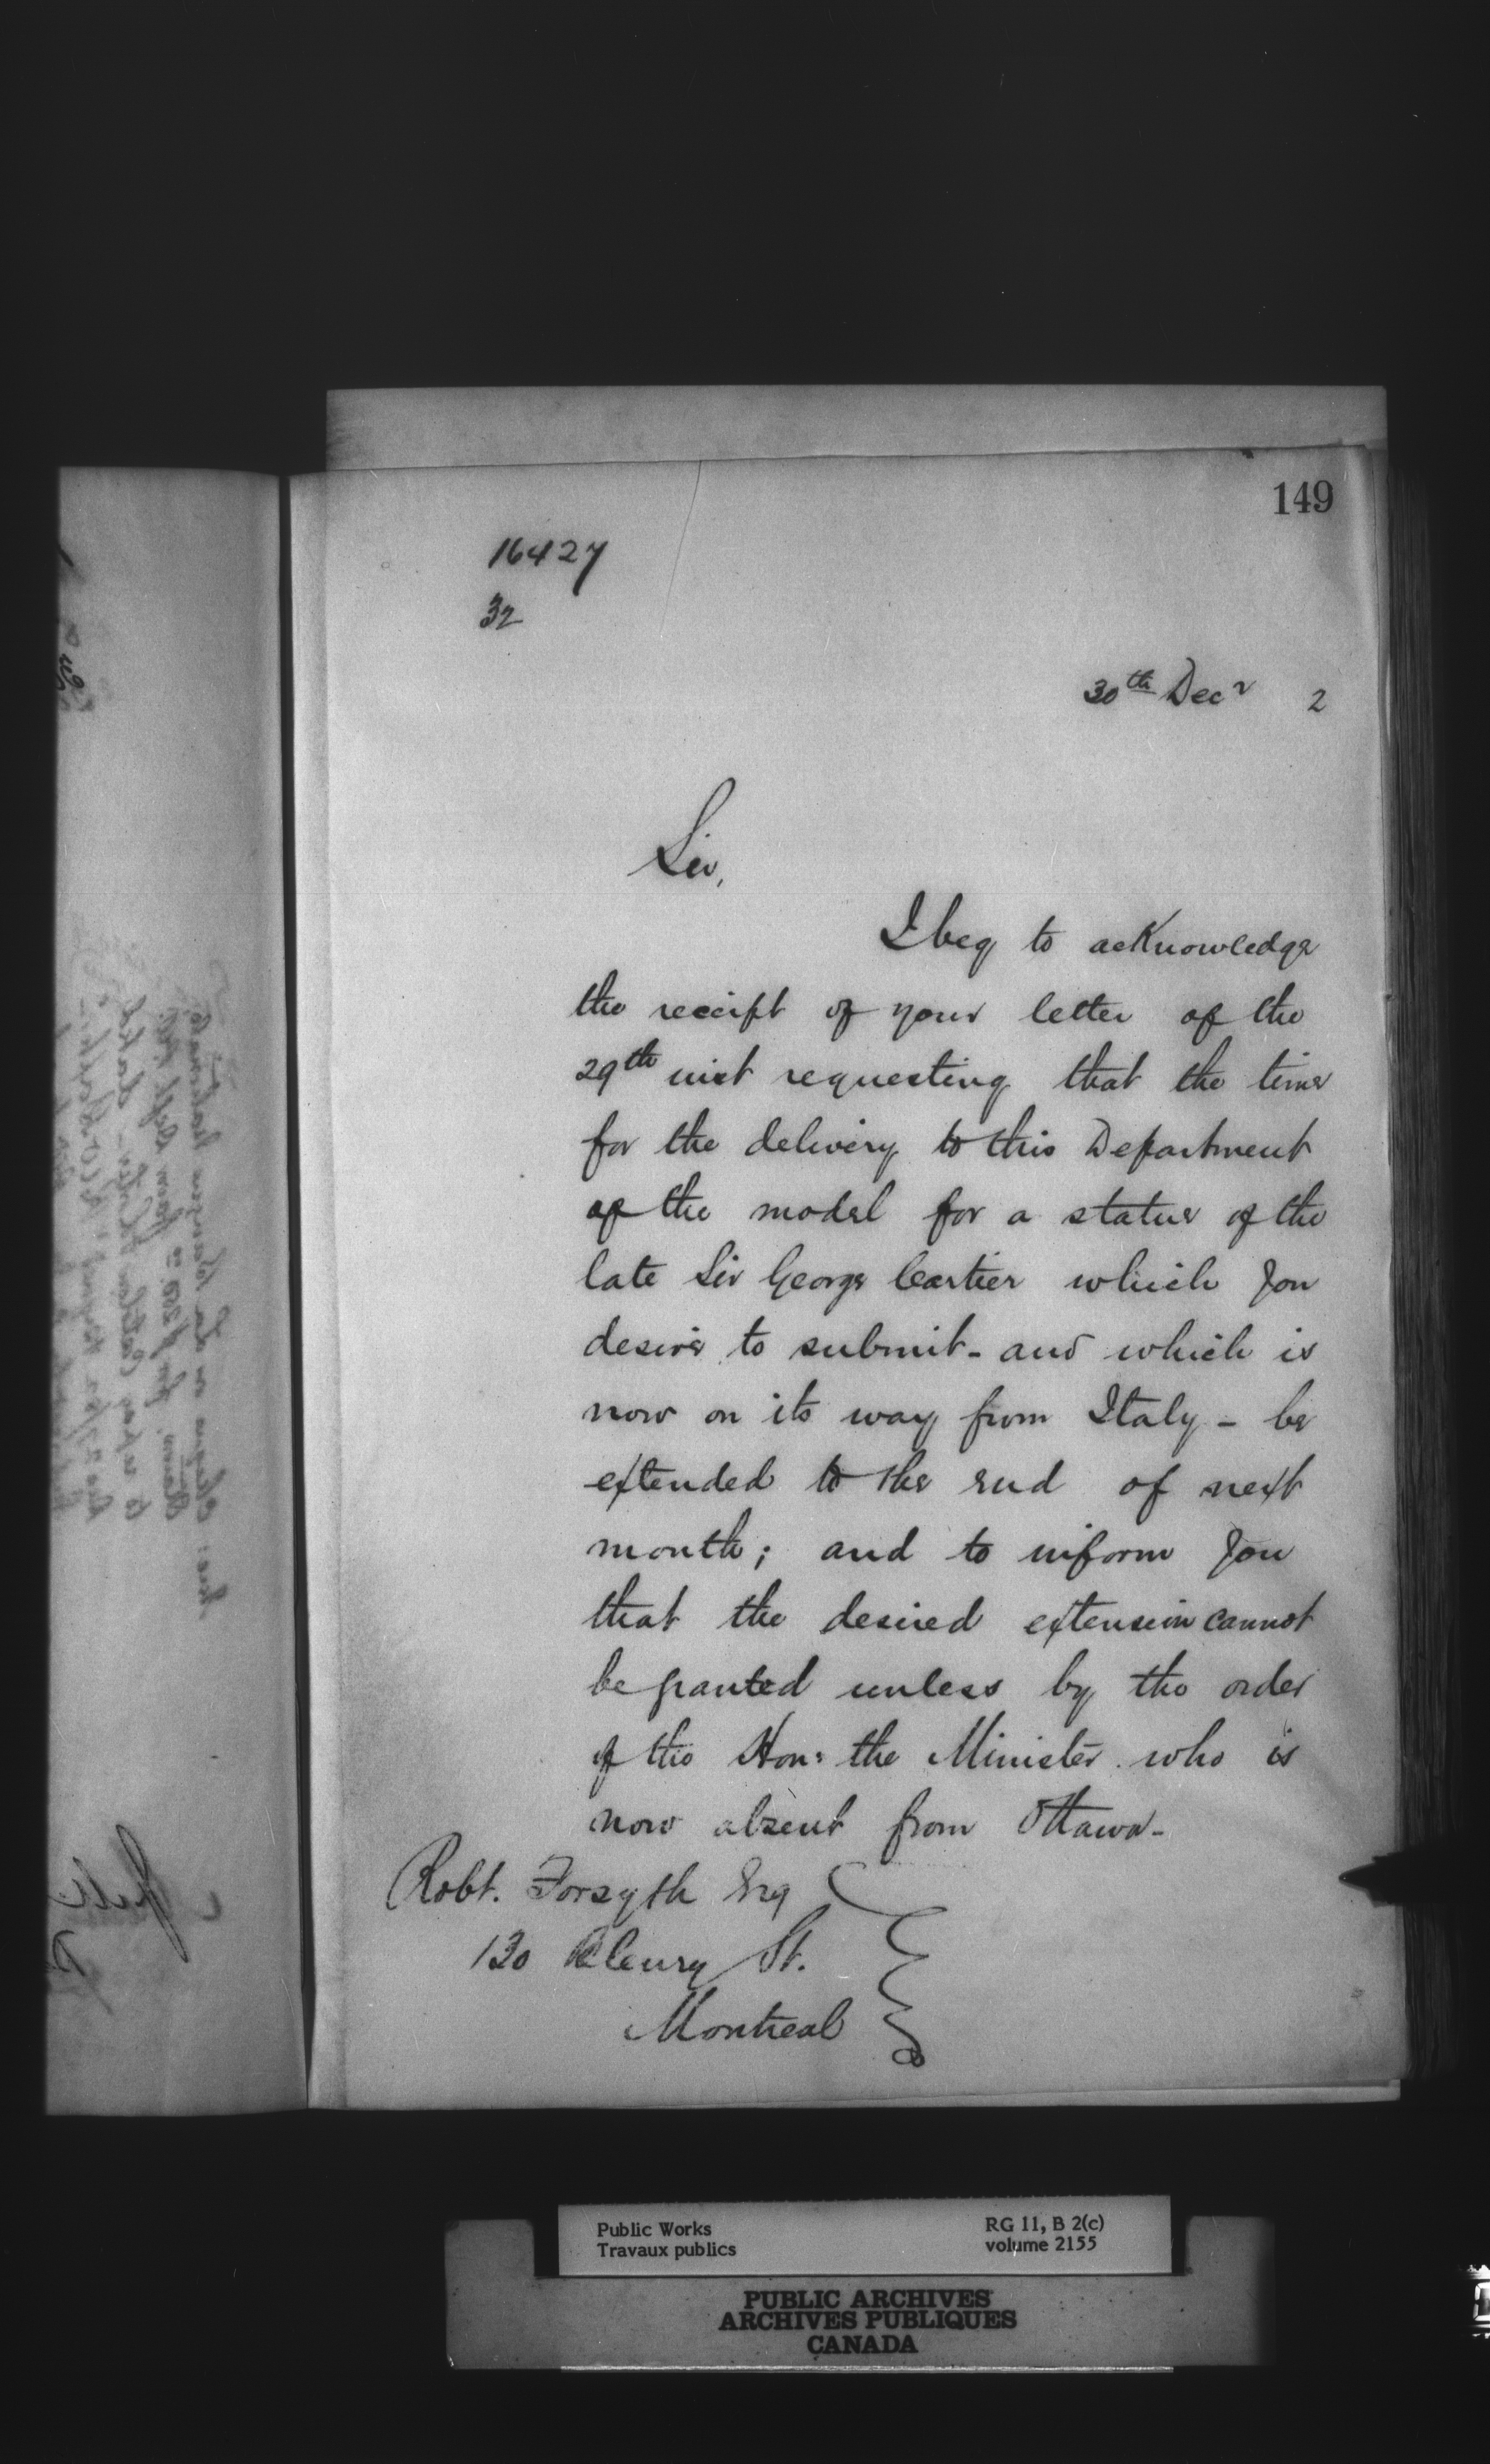 149
16427
32
30th Decr 2
Sir,
I beg to acknowledge
the receipt of your letter of the
29th inst requesting that the time
for the delivery to this Department
of the model for a statue of the
late Sir George Cartier which you
desire to submit - and which is
now on its way from Italy - be
extended to the end of next
month; and to inform you
that the desired extension cannot
be granted unless by the order
of the Hon: the Minister who is
now absent from Ottawa -
Robt. Forsyth Esq
130 Bleury St.
Montreal
Public Works
Travaux publics
RG 11, B 2(c)
volume 2155
PUBLIC ARCHIVES
ARCHIVES PUBLIQUES
CANADA